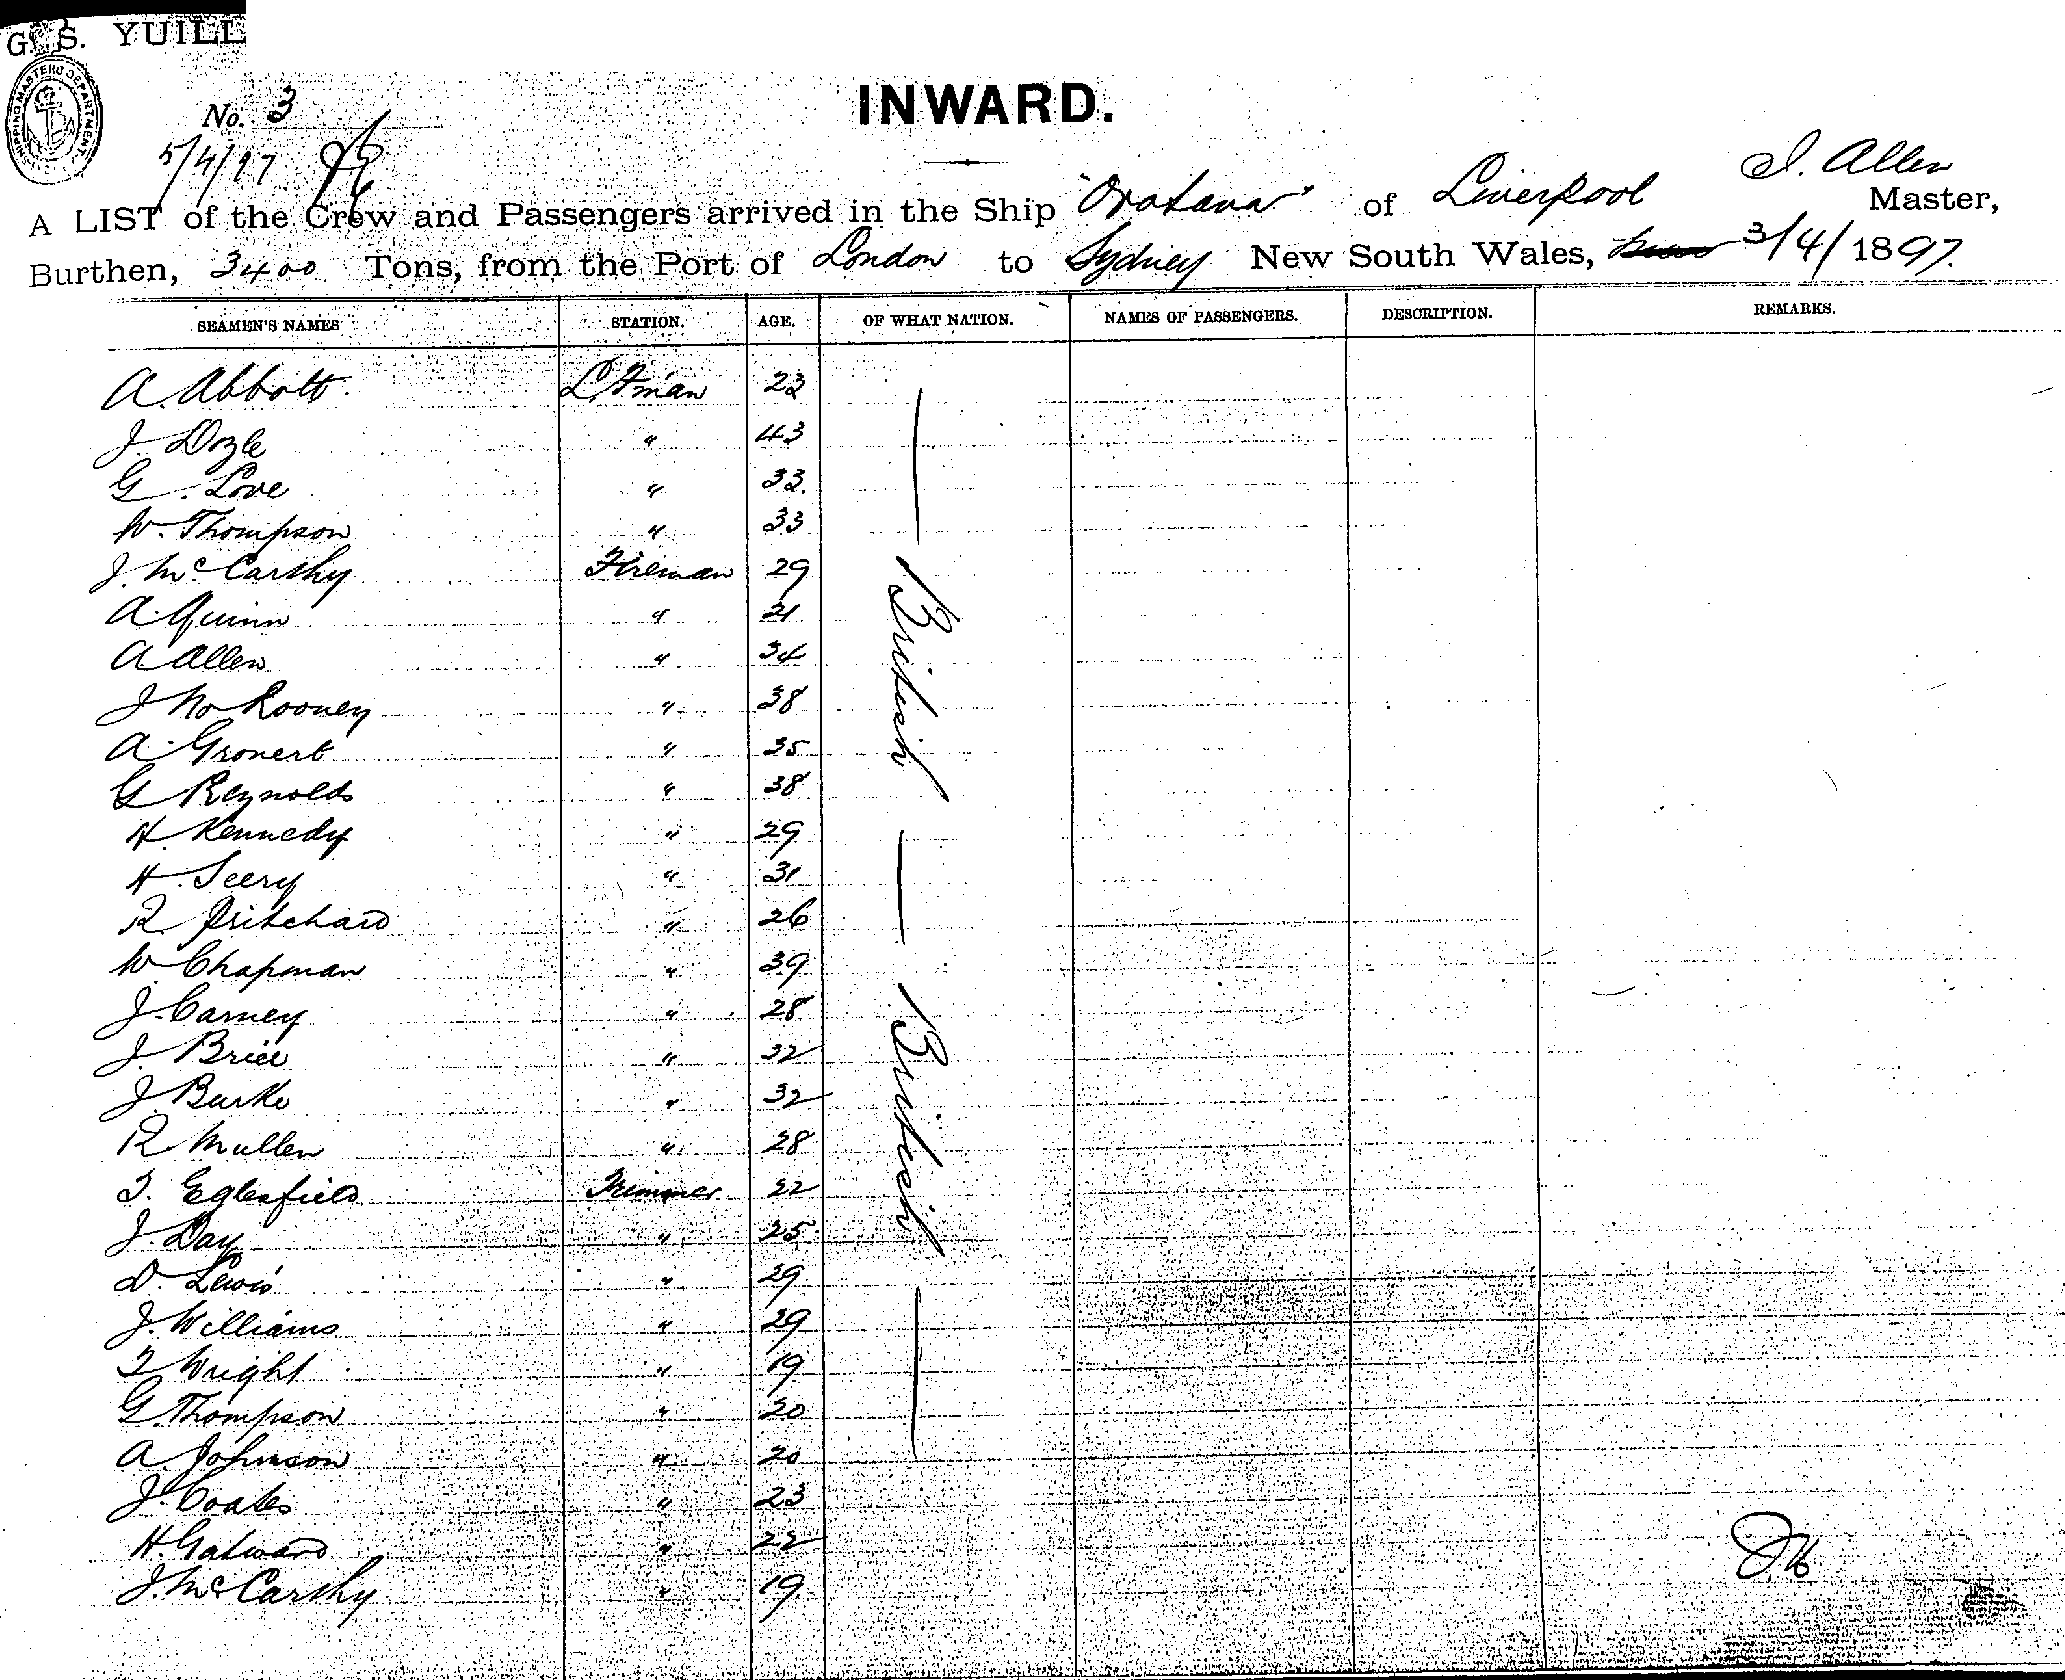 G. S. YUILL
SHIPPING MASTERS DEPARTMENT
No. 3
INWARD.
5/4/97
I. Allen
A LIST of the Crew and Passengers arrived in the Ship "Orotava" of Liverpool Master,
Burthen, 3400 Tons, from the Port of London to Sydney New South Wales, 3/4/1897.
SEAMEN'S NAMES STATION. AGE. OF WHAT NATION. NAMES OF PASSENGERS. DESCRIPTION. REMARKS.
A. Abbott L Fman 23
J. Doyle " 43
G. Love " 33
W. Thompson " 33
J. McCarthy Fireman 29
A. Quinn " 21
A Allen " 34
J Rooney " 38
A. Gronert " 35
G Reynolds " 38
H. Kennedy " 29
H. Seery " 31
R. Pritchard " 26
W Chapman " 39
J. Carney " 28
J. Brice " 32
J Burke " 32
R Mullen " 28
T. Eglesfield Trimmer 22
J. Day " 25
D. Lewis " 29
J. Williams " 29
T Wright " 19
G. Thompson " 20
A Johnson " 20
J. Coates " 23
H. Galward " 22
J. McCarthy " 19
British
British